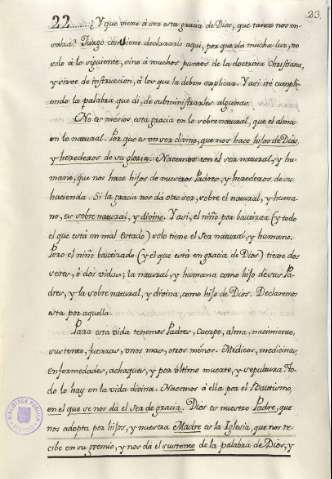 23
22...... ¿Y que viene à ser esta gracia de Dios, que tanto nos
Juzgo conviene declararlo aqui, porque dà mucha luz, no
solo à lo siguiente, sino à muchos puntos de la doctrina Christiana,
y sirve de instruccion, à los que la deben explicar. Y asi iré cumpli-
endo la palabra que di, de subministrarles algunas.
No es menos esta gracia en lo sobre natural, que el alma
en lo natural. Por que es un ser divino, que nos hace hijos de Dios,
y herederos de su gloria. Nacemos con el ser natural, y hu-
mano, que nos hace hijos de nuestros Padres, y herederos de su
hacienda. Si la gracia nos dà otro ser, sobre el natural, y huma-
no, es sobre natural, y divino. Y asi, el niño por bautizar (y todo
el que està en mal estado) solo tiene el ser natural, y humano.
Pero el niño bautizado (y el que està en gracia de Dios) tiene dos
seres, ò dos vidas; la natural, y humana como hijo de sus Pa-
dres, y la sobre natural, y divina, como hijo de Dios. Declaremos
esta por aquella.
Para esta vida tenemos Padres, cuerpo, alma, nacimiento,
sustento, fuerzas, unos mas, otros menos. Medicos, medicinas,
enfermedades, achaques, y por ultimo muerte, y sepultura. To-
do lo hay en la vida divina. Nacemos à ella por el Bautismo,
en el que se nos dà el ser de gracia. Dios es nuestro Padre, que
nos adopta por hijos, y nuestra Madre es la Iglesia, que nos re-
cibe en su gremio, y nos dà el sustento de la palabra de Dios, y